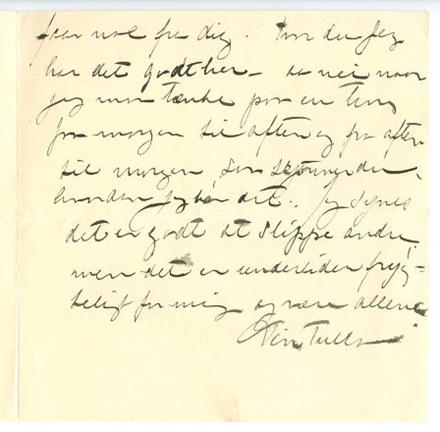 faar nok fra dig. Tror du Jeg
har det godt her – aa nei naar
jeg maa tænke paa en ting
fra morgen til aften og fra aften
til morgen, saa skjønner du,
hvordan jeg har det. Jeg synes
det er godt at slippe andre
men det er undertiden frygte-
ligt for mig at være allene
Din Tulla